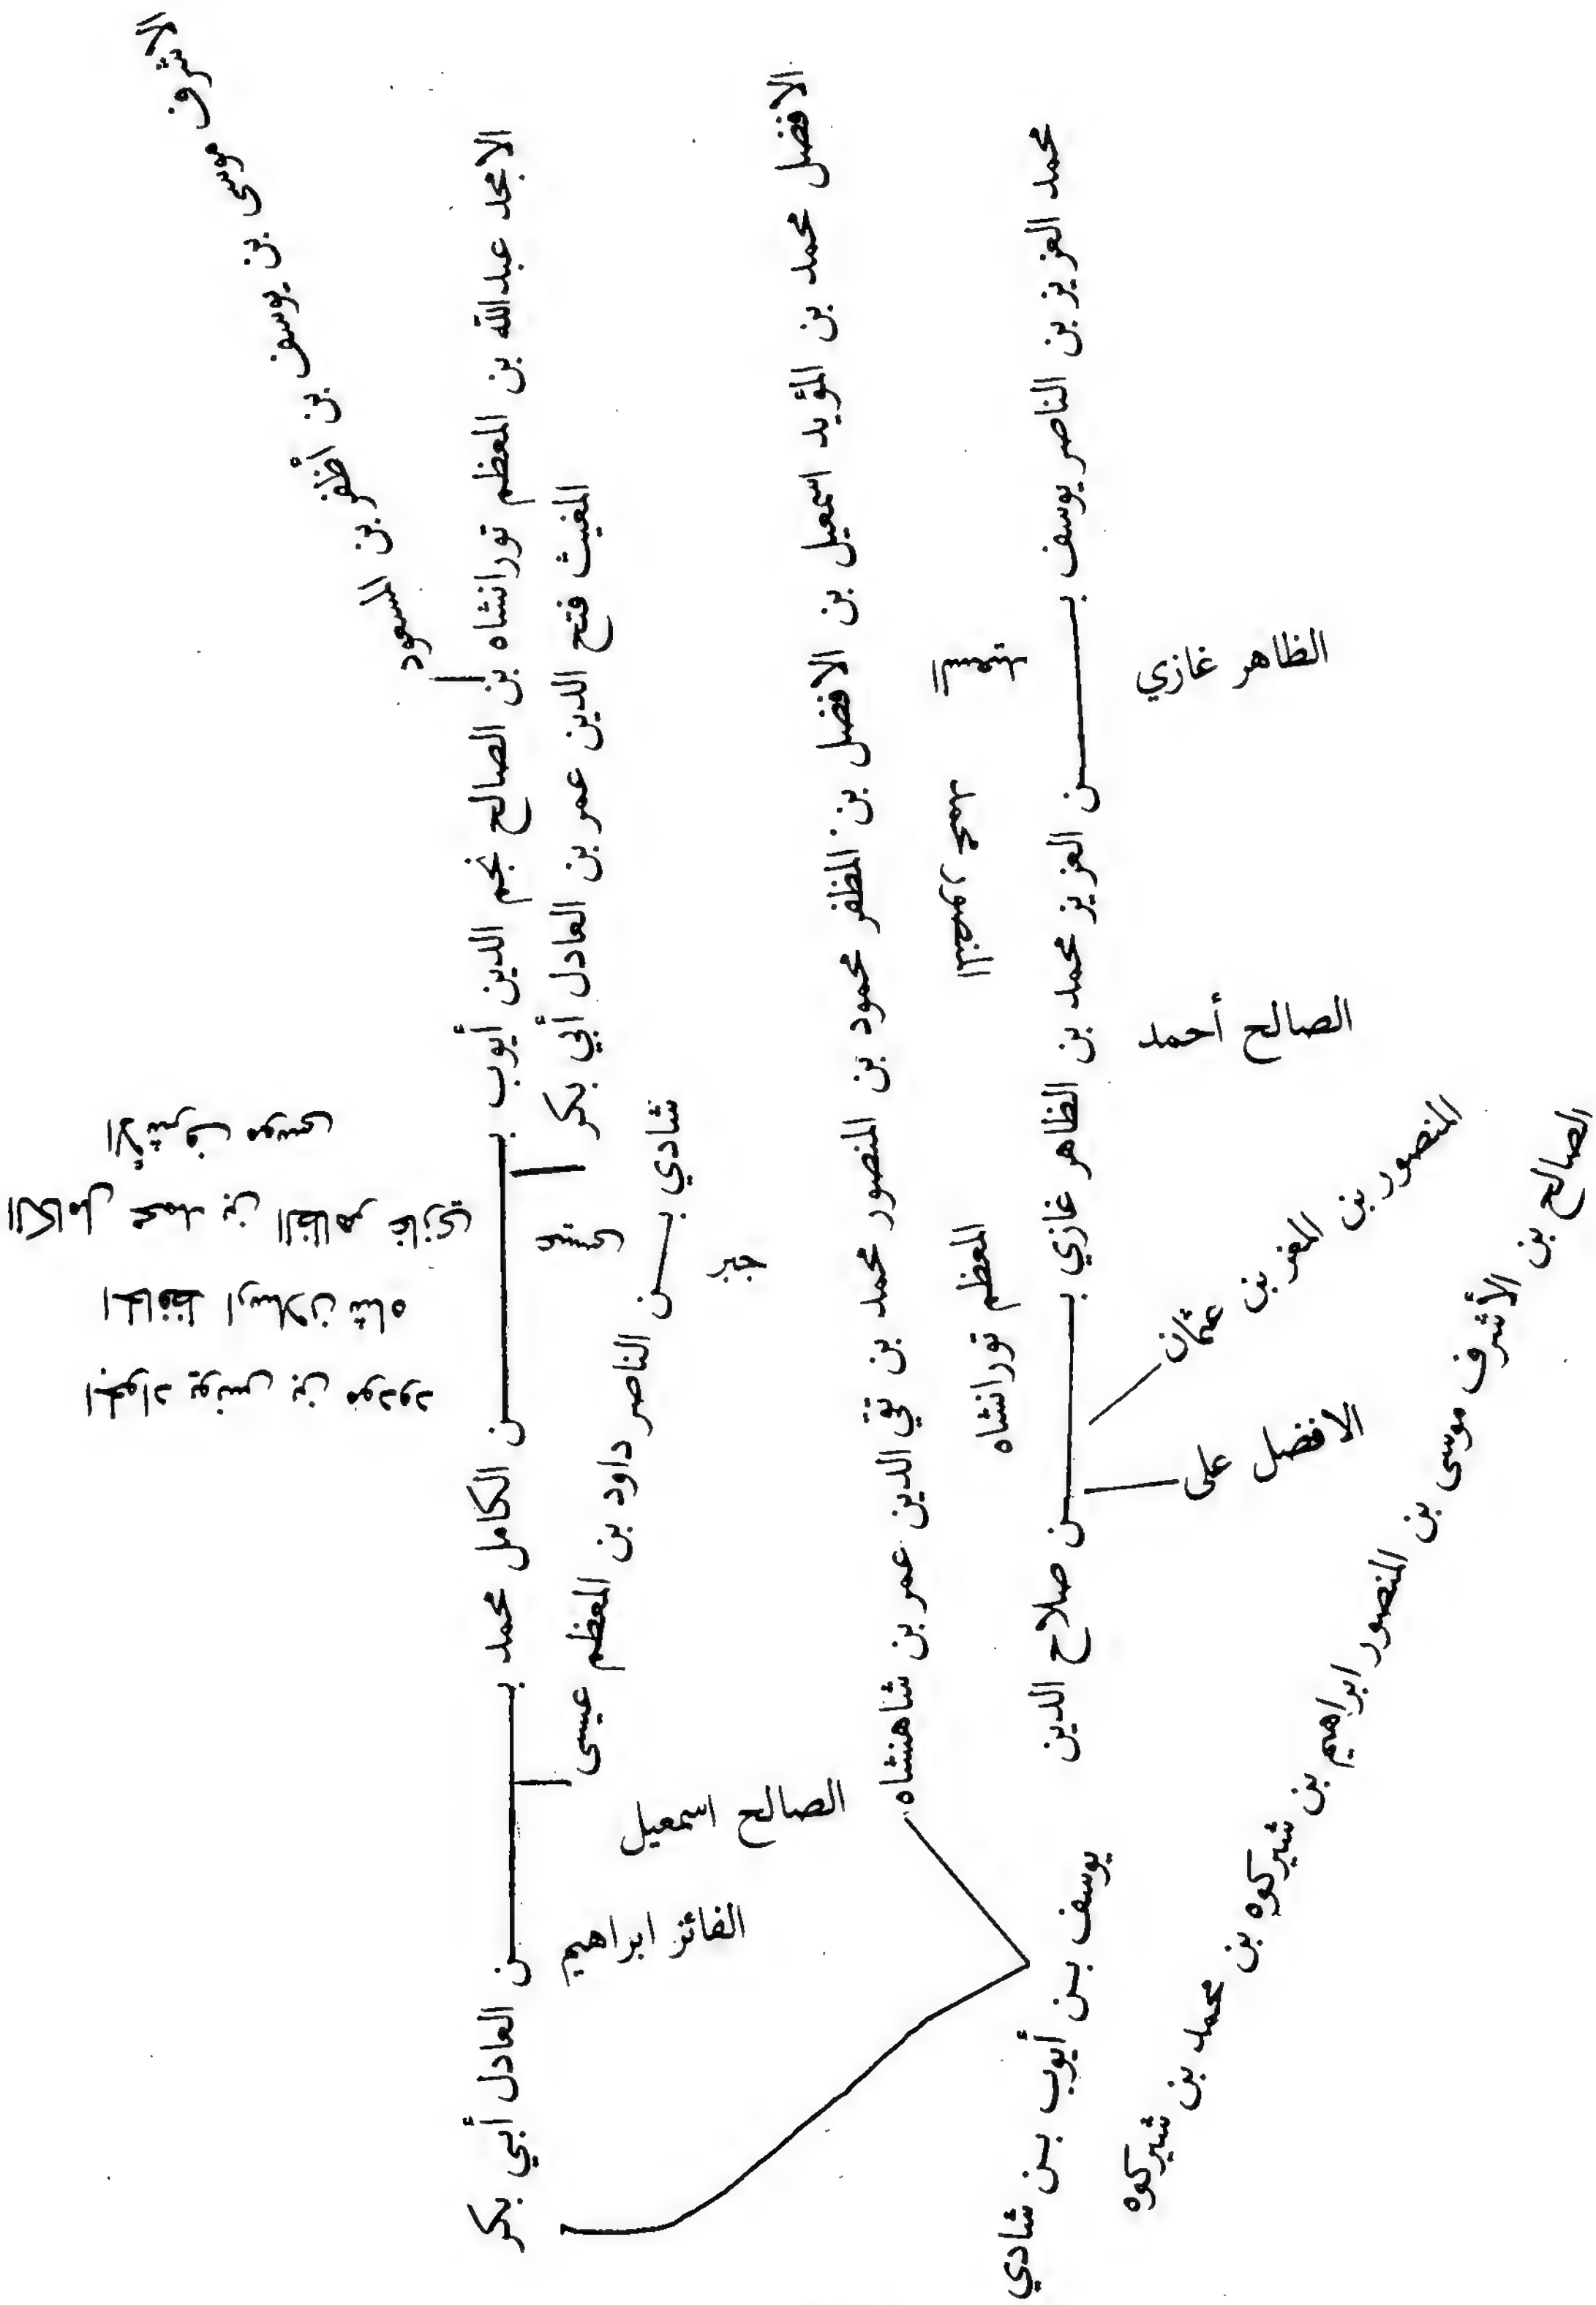 الاشرف موسى بن يوسف بن أظفر بن المسعود
الامجد عبدالله بن المعظم تورانشاه بن الصالح نجم الدين أيوب بـــن الكامل محمد بـــن العادل أبي بكر
المغيث فتح الدين عمر بن العادل أبي بكر
الاشرف موسى
الكامل محمد بن الظاهر غازي
الحافظ ارسلان شاه
الجواد يونس بن مودود
شادي بـــن الناصر داود بن المعظم عيسى
الصالح اسمعيل
الفائز ابراهيم
الافضل محمد بن المؤيد اسمعيل بن الافضل بن المظفر محمود بن المنصور محمد بن تقي الدين عمر بن شاهنشاه
المعظم تورانشاه
محمد العزيز بن الناصر يوسف بـــن العزيز محمد بن الظاهر غازي بـــن صلاح الدين
يوسف بـن أيوب بـن شادي
الظاهر غازي
الصالح أحمد
المنصور بن العز بن عثمان
الافضل على
الصالح بن الأشرف موسى بن المنصور ابراهيم بن شيركوه بن محمد بن شيركوه